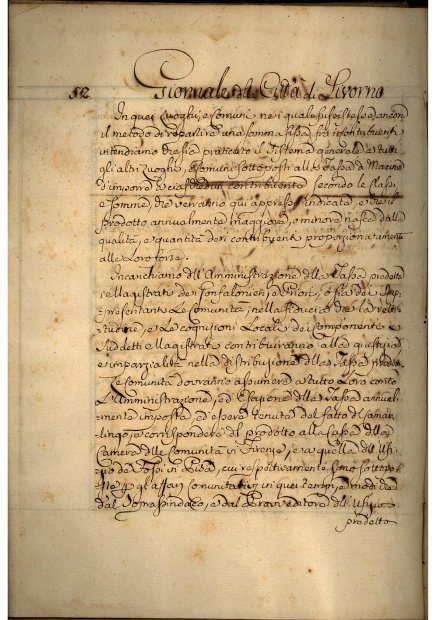 52 Giornale della Città di Livorno
In quei Luoghi, e Comuni nei quali sussistesse ancora
il metodo di repartire una somma fissa fra i contribuenti
intendiamo che sia praticato il sistema generale a tutti
gli altri Luoghi, e Comuni sottoposti alla Tassa di Macina
d'imporre a ciaschedun contribuente secondo le Classi
e somme, che verranno qui appresso indicate, e che il
prodotto annualmente maggiore, o minore nasca dalla
qualità, e quantità dei contribuenti proporzionatamente
alle Loro forze.
Incarichiamo dell'Amministrazione della Tassa predetta
i Magistrati dei Gonfalonieri, e Priori, o sia dei Rap=
presentanti le Comunità, nella fiducia che la retti=
tudine, e le cognizioni Locali dei Componenti i
suddetti Magistrati contribuiranno alla giustizia
e imparzialità nella distribuzione della Tassa predetta.
Le Comunità dovranno assumere a tutto Loro conto
L'Amministrazione, ed Esazione della Tassa annual=
mente imposta, ed essere tenute del fatto di
e corrispondere del prodotto alla Cassa della
Camera delle Comunità in Firenze, e a quella dell'Ufi=
zio dei Fossi in Pisa, cui respettivamente sono sottopo=
ste p gl'affari comunitativi in quei tempi, e modi che
dal Soprassindaco, e dal Provveditore dell'Ufizio
predetto